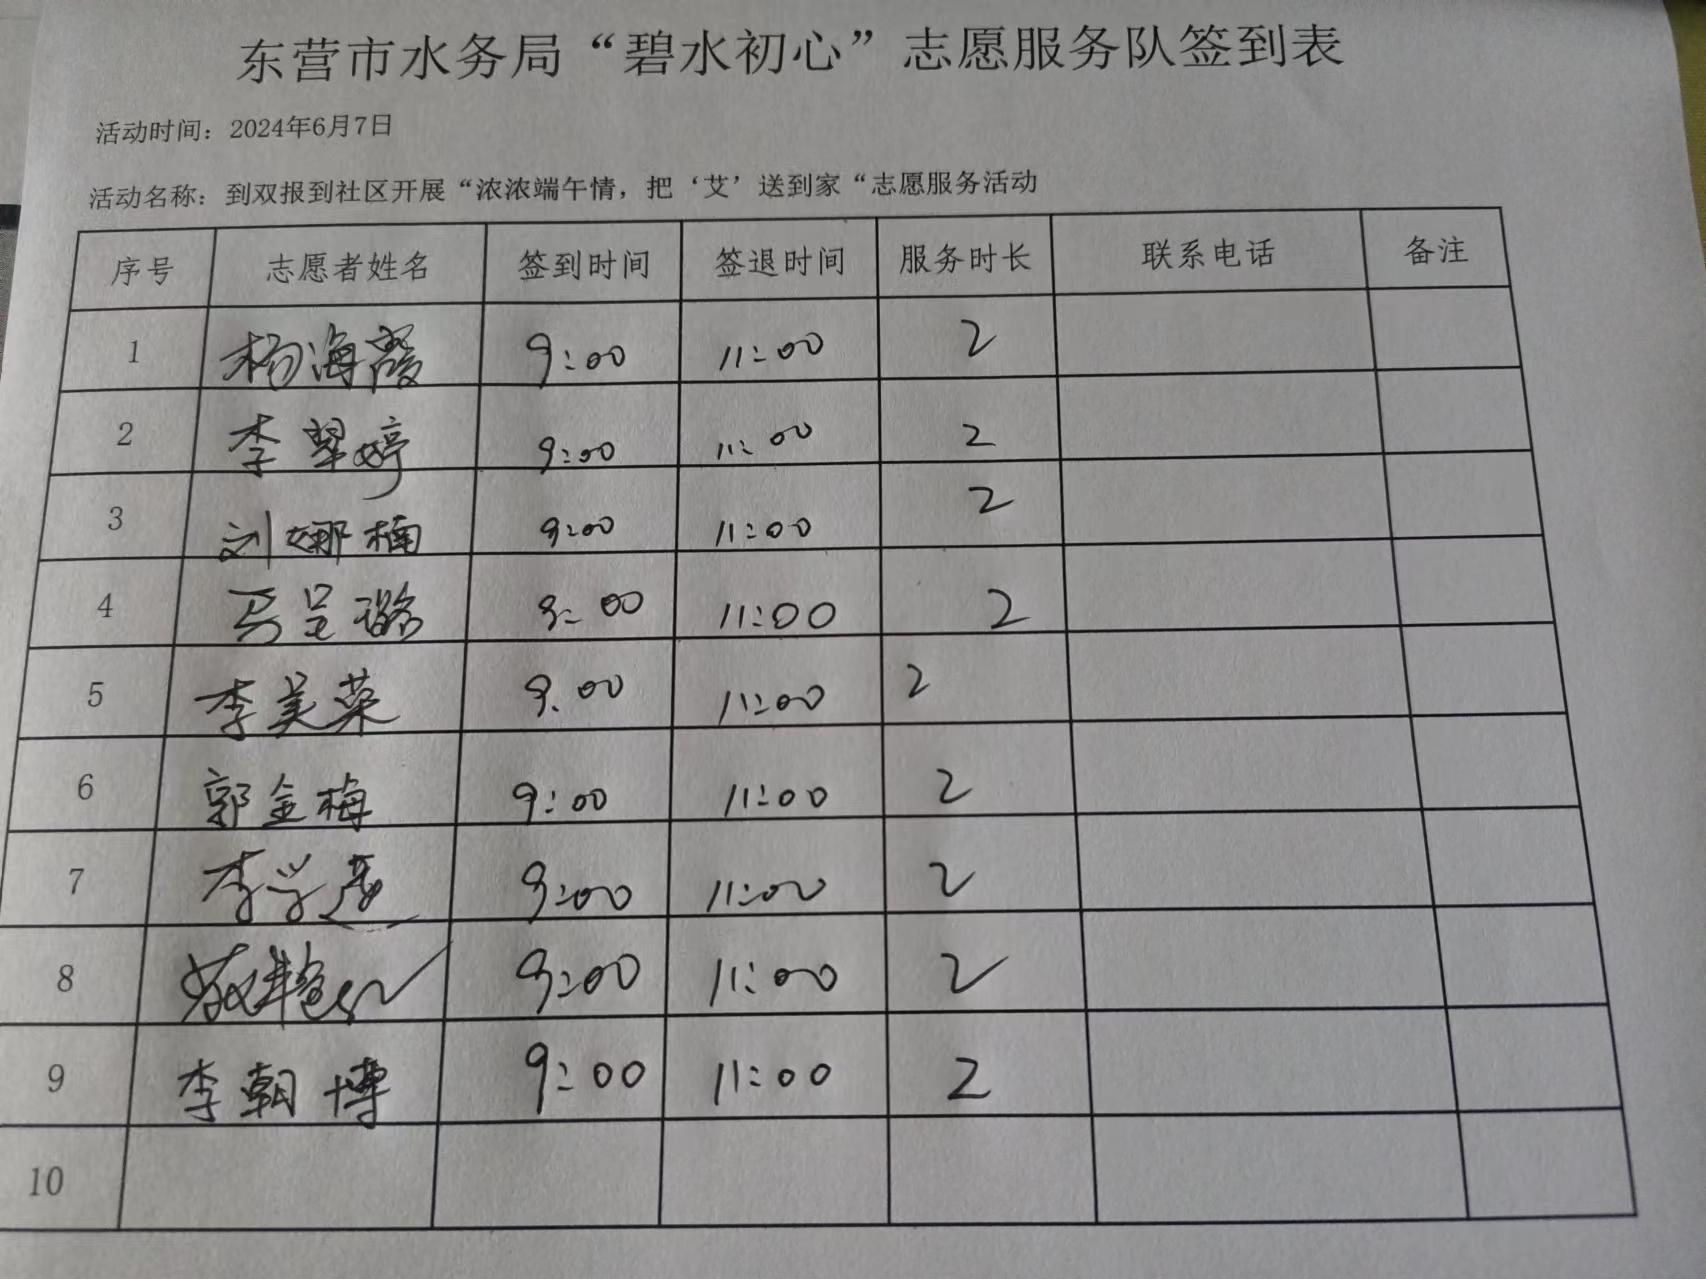 东营市水务局“碧水初心”志愿服务队签到表
活动时间：2024年6月7日
活动名称：到双报到社区开展“浓浓端午情，把‘艾’送到家“志愿服务活动
序号 志愿者姓名 签到时间 签退时间 服务时长 联系电话 备注
1 杨海霞 9:00 11:00 2
2 李翠婷 9:00 11:00 2
3 刘娜楠 9:00 11:00 2
4 马呈璐 9:00 11:00 2
5 李美荣 9:00 11:00 2
6 郭金梅 9:00 11:00 2
7 李学 9:00 11:00 2
8 9:00 11:00 2
9 李朝博 9:00 11:00 2
10